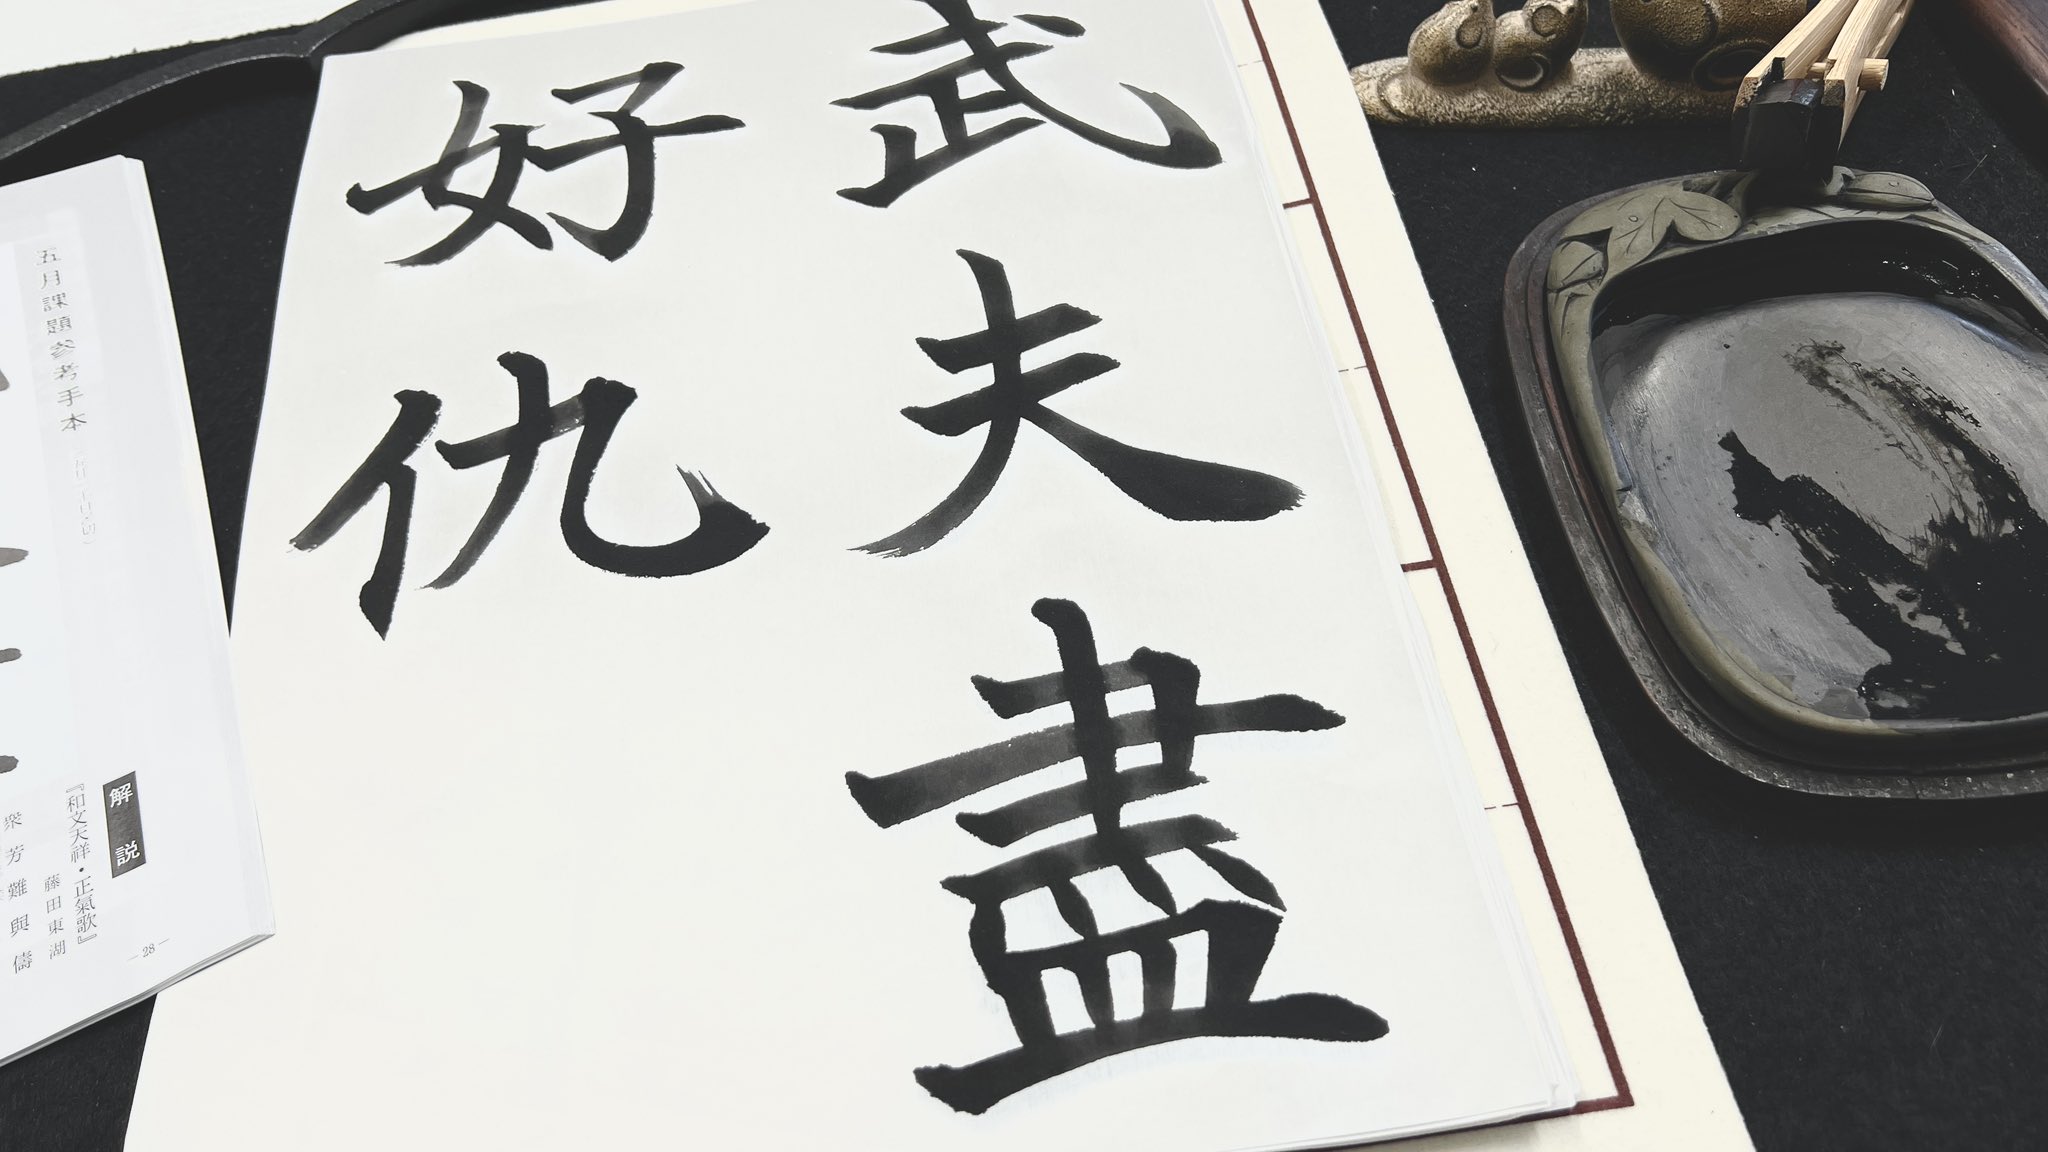 武夫盡
好仇
五月課題参考手本
解説
『和文天祥・正氣歌』
藤田東湖
衆芳難與儔
－28－